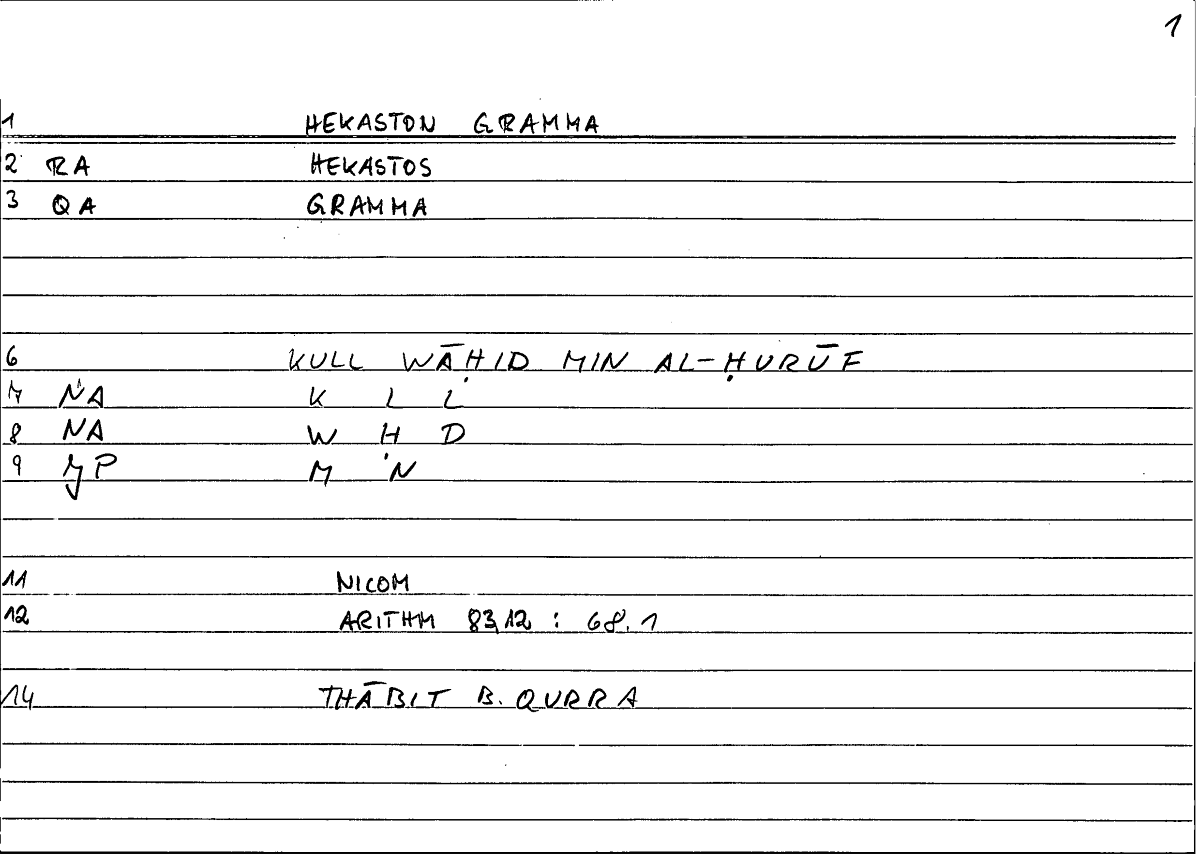 1
1 HEKASTON GRAMMA
2 RA HEKASTOS
3 QA GRAMMA
6 KULL WĀḤID MIN AL-ḤURŪF
7 NA K L L
8 NA W H D
9 P M N
11 NICOM
12 ARITHM 83,12 : 68.1
14 THĀBIT B. QURRA